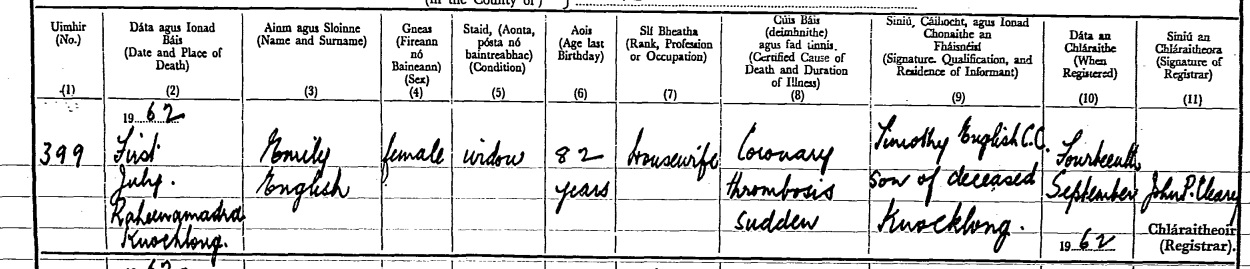 (In the County of)
Uimhir
(No.)
(1)
Dáta agus Ionad
Báis
(Date and Place of
Death)
(2)
Ainm agus Sloinne
(Name and Surname)
(3)
Gneas
(Fireann
nó
Baineann)
(Sex)
(4)
Staid, (Aonta,
pósta nó
baintreabhac)
(Condition)
(5)
Aois
(Age last
Birthday)
(6)
Slí Bheatha
(Rank, Profession
or Occupation)
(7)
Cúis Báis
(deimhnithe)
agus fad tinnis.
(Certified Cause of
Death and Duration
of Illness)
(8)
Siniú, Cáilíocht, agus Ionad
Chonaithe an
Fháisnéisí
(Signature, Qualification, and
Residence of Informant)
(9)
Dáta an
Chláraithe
(When
Registered)
(10)
Siniú an
Chláraitheora
(Signature of
Registrar)
(11)
399
19 62
First
July.
Raheenamadra
Knocklong.
Emily
English
female
widow
82
years
Housewife
Coronary
thrombosis
sudden
Timothy English C.C.
son of deceased
Knocklong.
Fourteenth
September
19 62
John P. Cleary
Chláraitheoir
(Registrar).
62